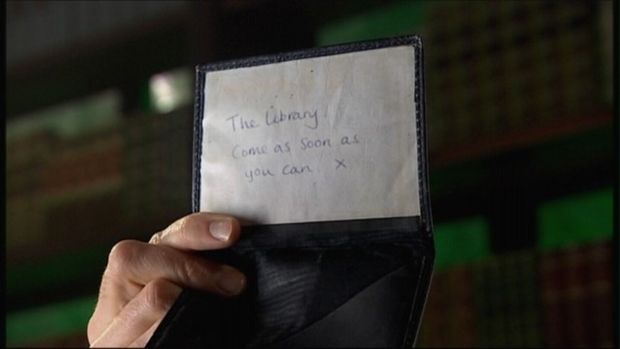 The Library.
Come as soon as
you can x